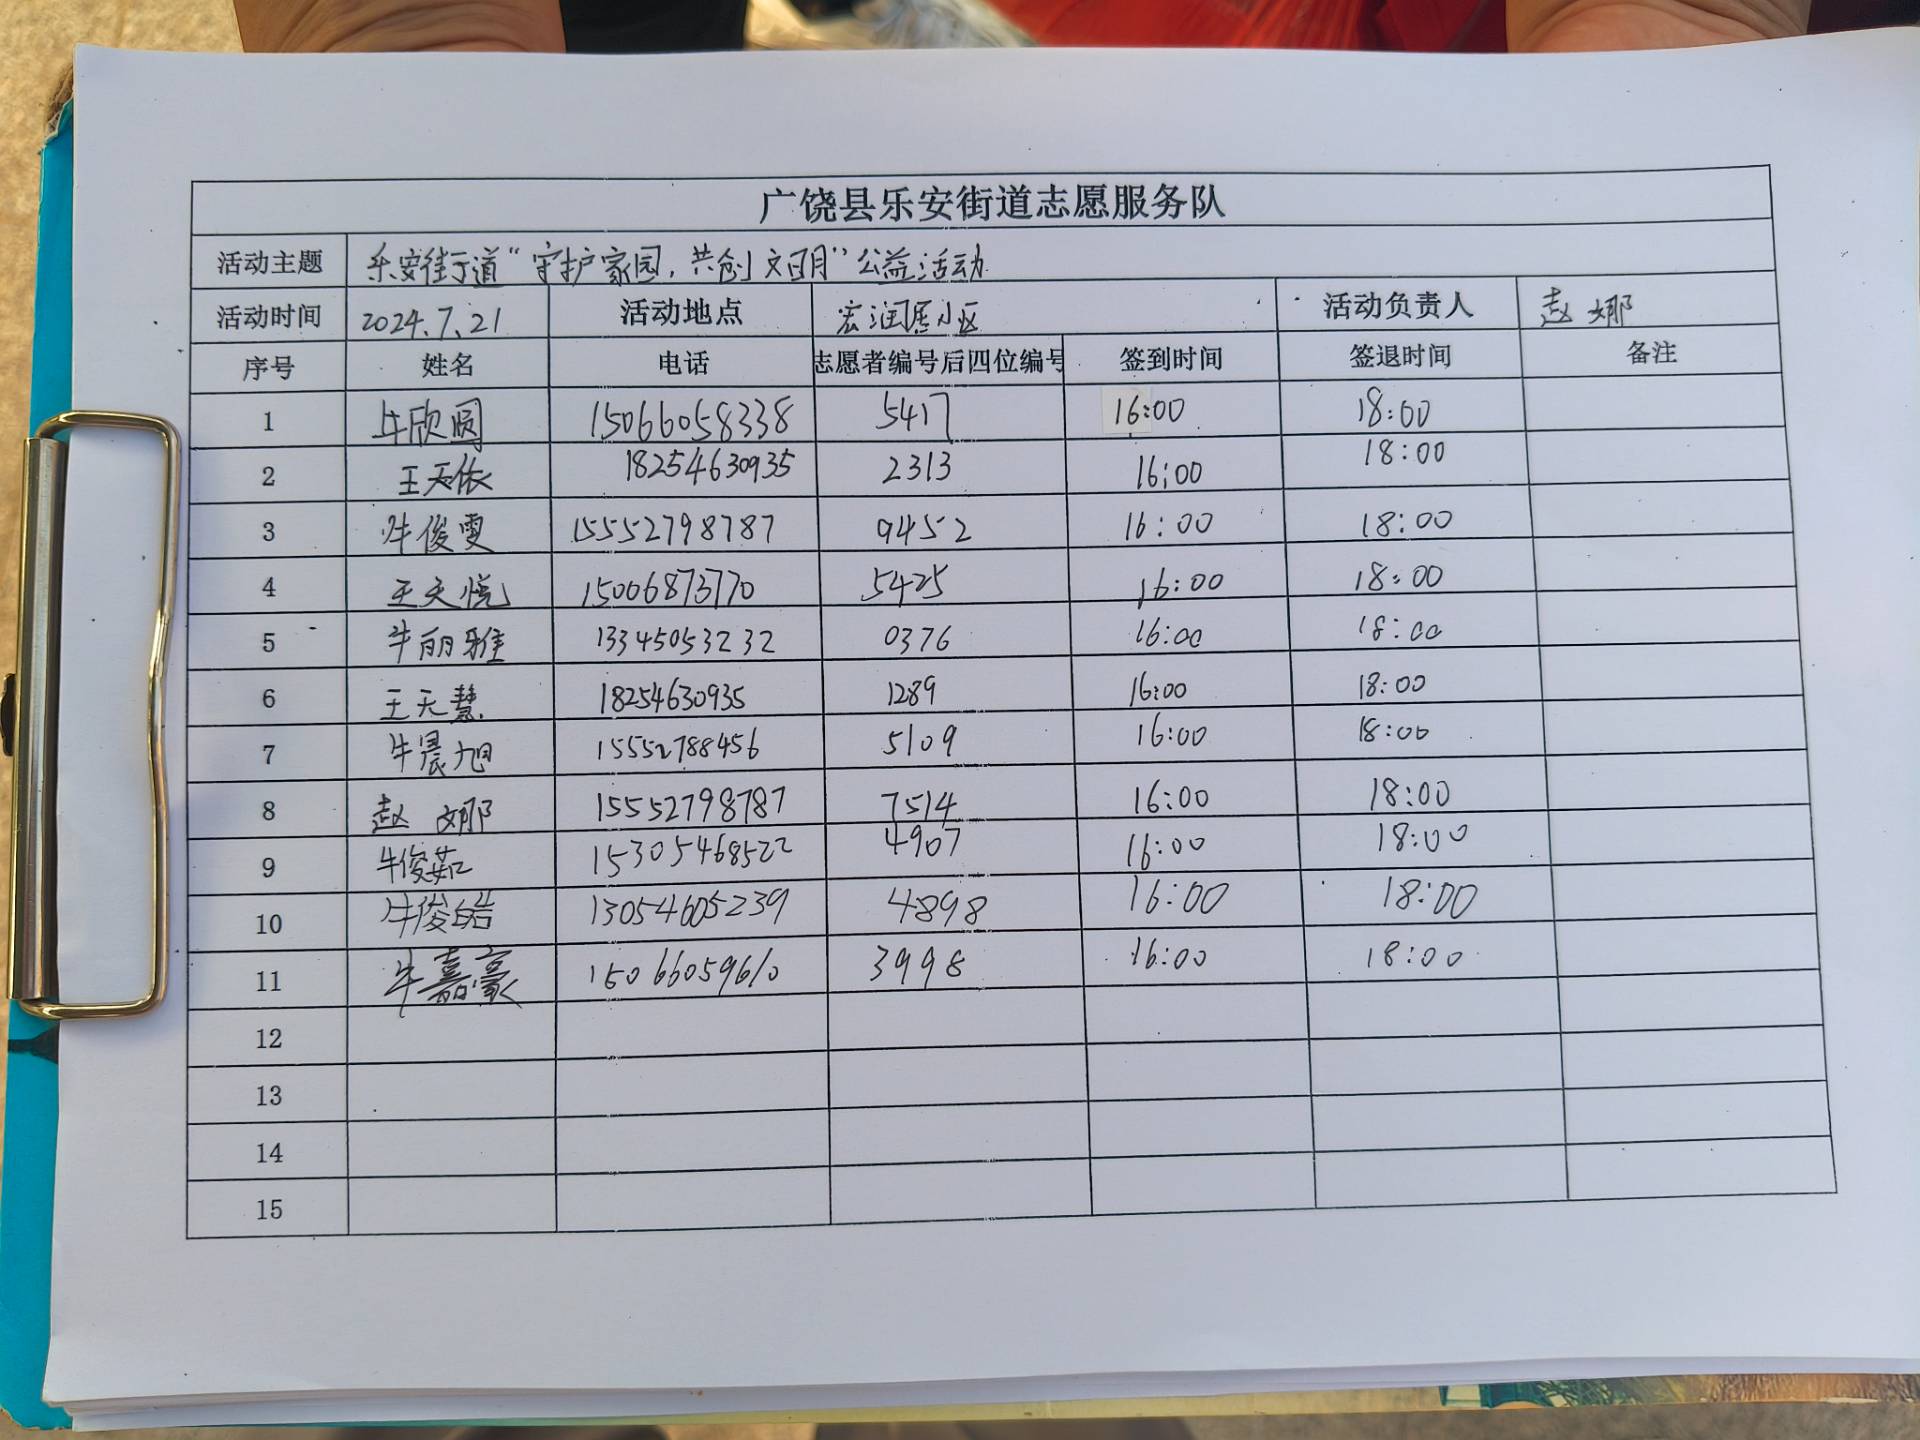 广饶县乐安街道志愿服务队
活动主题 乐安街道“守护家园，共创文明”公益活动
活动时间 2024.7.21 活动地点 宏润居小区 活动负责人 赵娜
序号 姓名 电话 志愿者编号后四位编号 签到时间 签退时间 备注
1 牛欣圆 15066058338 5417 16:00 18:00
2 王天依 18254630935 2313 16:00 18:00
3 牛俊雯 15552798787 9452 16:00 18:00
4 王天悦 15006873770 5425 16:00 18:00
5 牛丽雅 13345053232 0376 16:00 18:00
6 王天慧 18254630935 1289 16:00 18:00
7 牛晨旭 15552788456 5109 16:00 18:00
8 赵娜 15552798787 7514 16:00 18:00
9 牛俊茹 15305468522 4907 16:00 18:00
10 牛俊皓 13054605239 4898 16:00 18:00
11 牛嘉豪 15066059610 3998 16:00 18:00
12
13
14
15